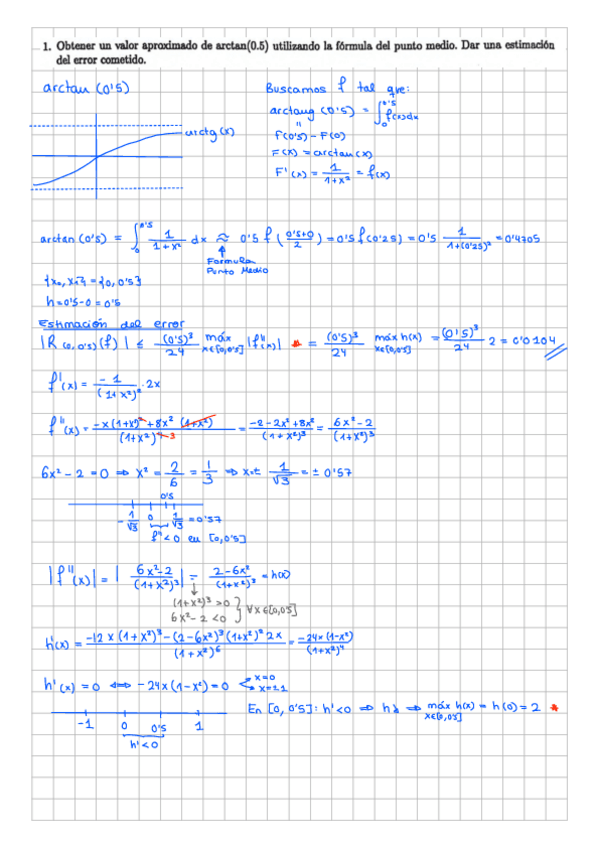 1. Obtener un valor aproximado de arctan(0.5) utilizando la fórmula del punto medio. Dar una estimación
del error cometido.
arctan (0'5)
Buscamos f tal que:
arctang (0'5) = ∫₀^0'5 f(x)dx
"
F(0'5) - F(0)
arctg(x)
F(x) = arctan(x)
F'(x) = 1/(1+x²) = f(x)
arctan (0'5) = ∫₀^0'5 1/(1+x²) dx ≈ 0'5 f((0'5+0)/2) = 0'5 f(0'25) = 0'5 1/(1+(0'25)²) = 0'4705
Formula
Punto Medio
h = 0'5-0 = 0'5
Estimación del error
|R(0,0'5)(f)| ≤ (0'5)³/24 máx x∈[0,0'5] |f''(x)| * = (0'5)³/24 máx h(x) x∈[0,0'5] = (0'5)³/24 2 = 0'0104
f'(x) = -1/(1+x²)² · 2x
= (-2-2x²+8x²)/(1+x²)³ = (6x²-2)/(1+x²)³
6x²-2 = 0 ⇒ x² = 2/6 = 1/3 ⇒ x = ± 1/√3 = ± 0'57
0'5
-1/√3 0 1/√3 = 0'57
f'' < 0 en [0,0'5]
|f''(x)| = |(6x²-2)/(1+x²)³| = (2-6x²)/(1+x²)³ = h(x)
(1+x²)³ > 0
6x²-2 < 0 } ∀x∈[0,0'5]
h'(x) = (-12x(1+x²)³-(2-6x²)3(1+x²)²2x)/(1+x²)⁶ = -24x(1-x²)/(1+x²)⁴
h'(x) = 0 ⟺ -24x(1-x²) = 0 x=0 x=±1
En [0,0'5]: h' < 0 ⇒ h ↘ ⇒ máx h(x) = h(0) = 2 *
x∈[0,0'5]
-1 0 0'5 1
h' < 0